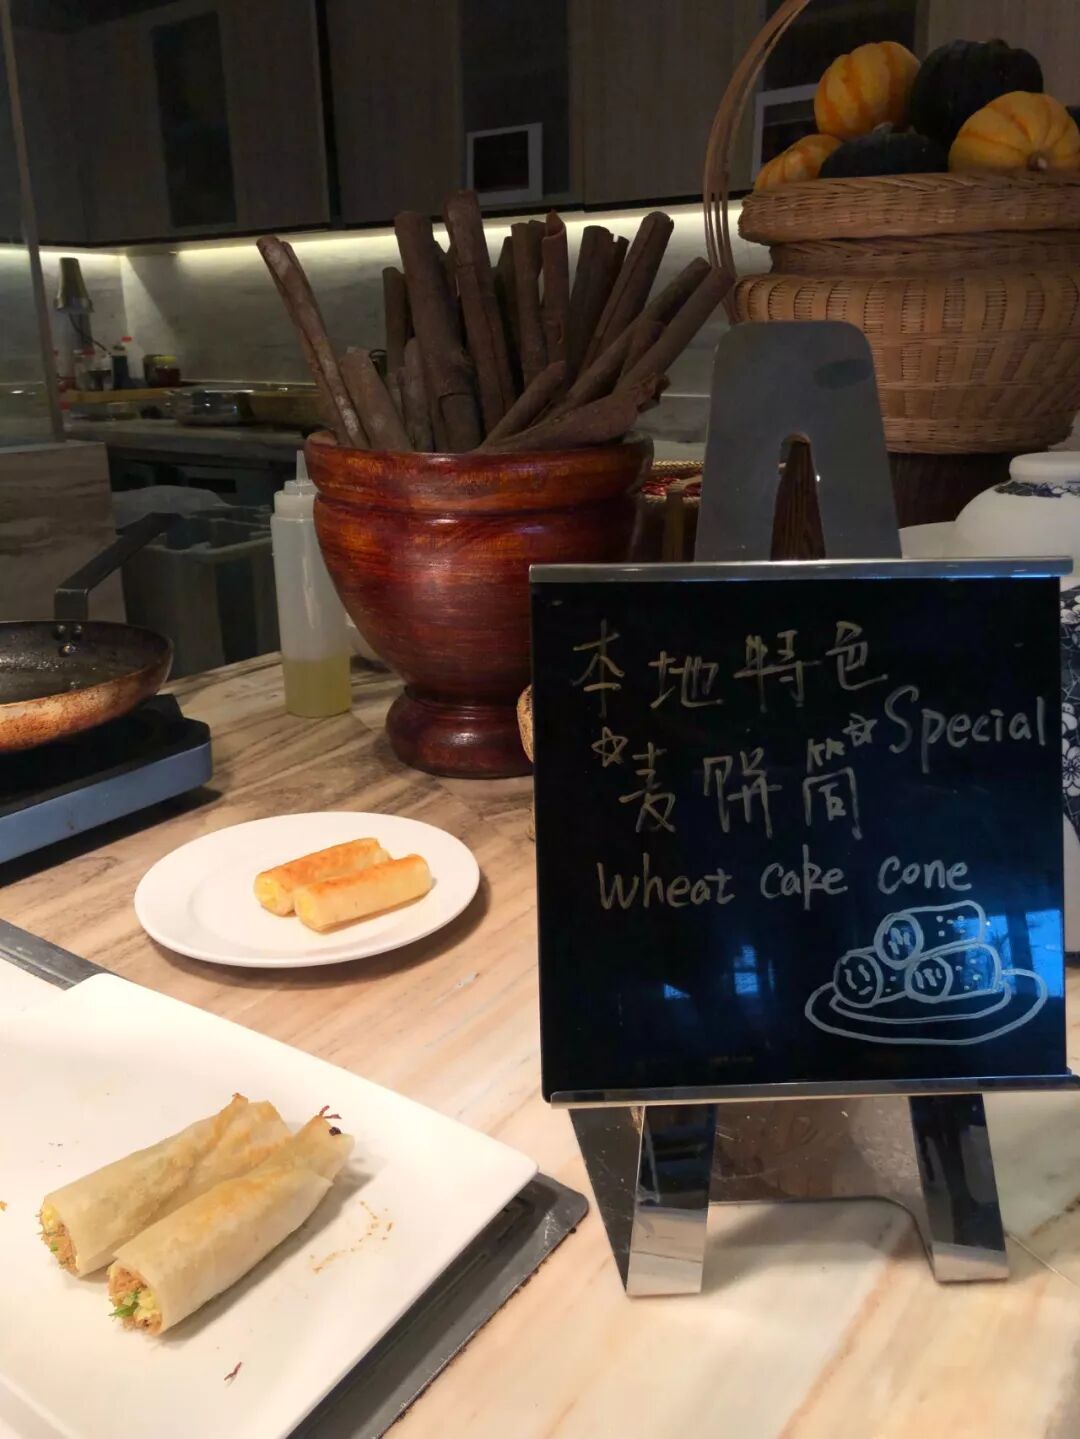 本地特色
☆麦饼筒☆Special
Wheat cake cone